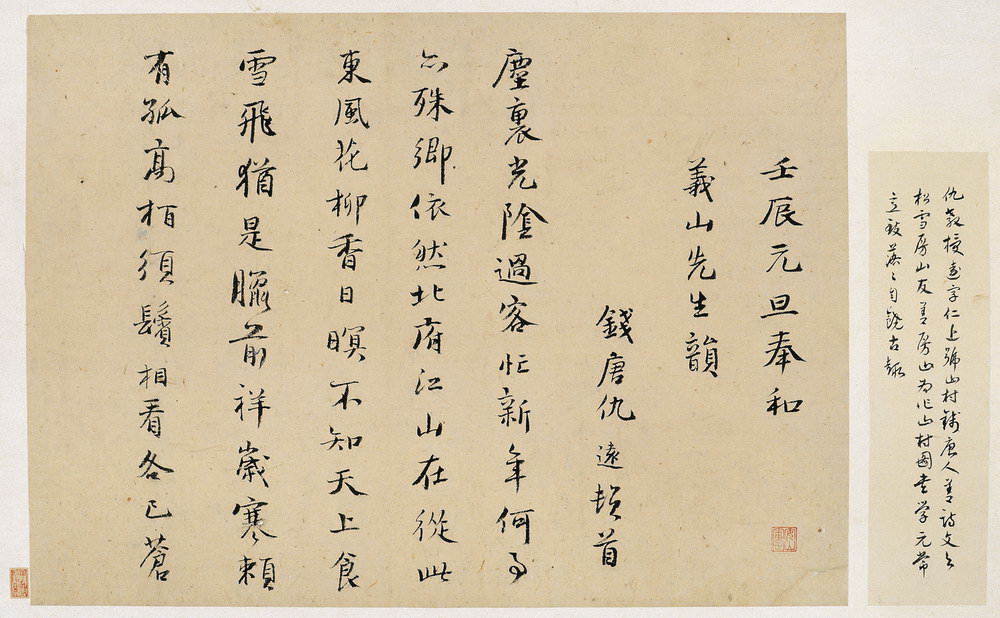 仇教授遠字仁上號山村錢唐人善詩文与
松雪房山友善房山為作山村圖書学元常
落々自饒古趣
壬辰元旦奉和
義山先生韻
錢唐仇遠頓首
塵裏光陰過客忙新年何事
亦殊鄉依然北府江山在從此
東風花柳香日暝不知天上食
雪飛猶是臘前祥歲寒賴
有孤高栢須鬢相看各已蒼